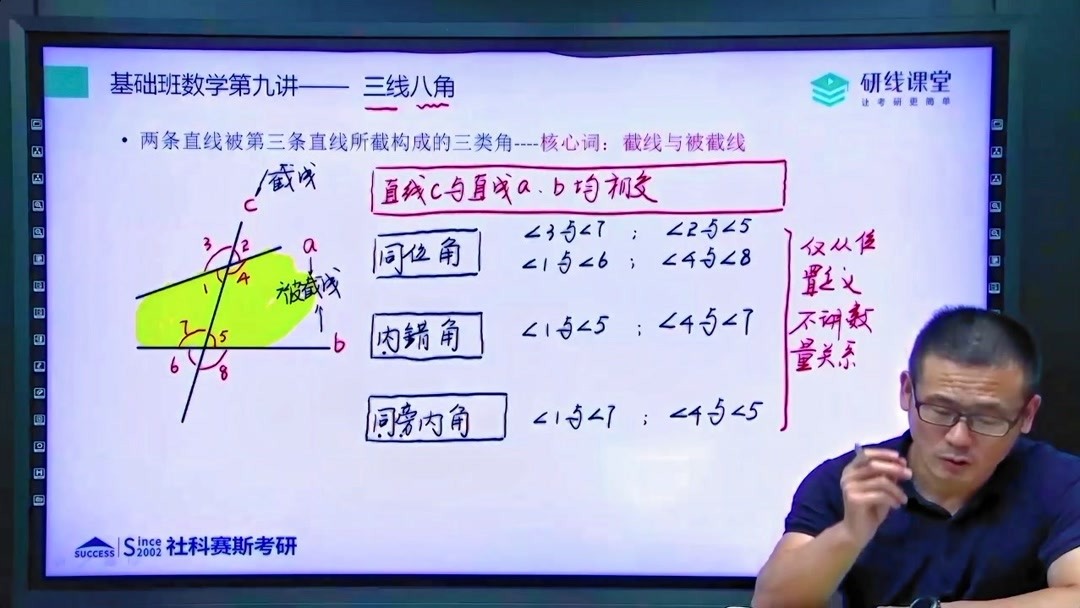 基础班数学第九讲—— 三线八角
研线课堂
让考研更简单
• 两条直线被第三条直线所截构成的三类角----核心词：截线与被截线
截线
c
直线c与直线a、b均相交
3 2
1 4
a
被截线
7 5
6 8
b
同位角
∠3与∠7 ； ∠2与∠5
∠1与∠6 ； ∠4与∠8
内错角
∠1与∠5 ； ∠4与∠7
同旁内角
∠1与∠7 ； ∠4与∠5
仅从位
置定义
不讲数
量关系
SUCCESS
Since
2002
社科赛斯考研